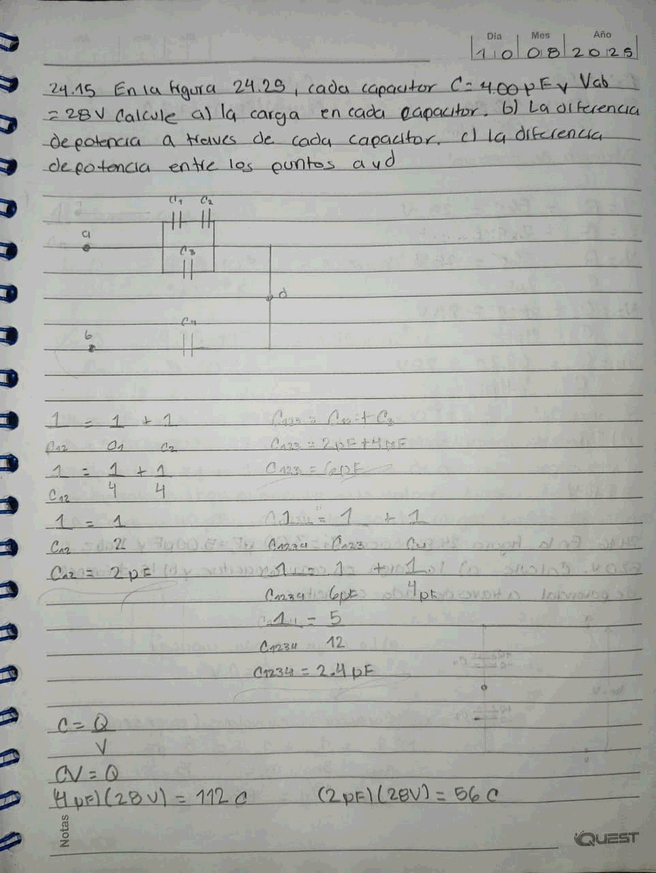 Día Mes Año
10 08 2025
24.15 En la figura 24.29, cada capacitor C = 4.00 pF y Vab
= 28 V Calcule a) la carga en cada capacitor. b) La diferencia
de potencia a traves de cada capacitor. c) la diferencia
de potencia entre los puntos a y d
C1 C2
a
C3
d
C4
b
1 = 1 + 1
C12 C1 C2
C123 = C12 + C3
C123 = 2pF + 4pF
1 = 1 + 1
C12 4 4
C123 = 6pF
1 = 1
C12 2
C12 = 2 pF
1 = 1 + 1
C1234 C123 C4
1 = 1 + 1
C1234 6pF 4pF
1 = 5
C1234 12
C1234 = 2.4 pF
C = Q
V
CV = Q
(4 pF)(28V) = 112 C (2 pF)(28V) = 56 C
Notas
QUEST